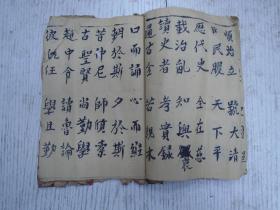 順治立 號大清
民服 天下平
歷代史 全在茲
載治亂 知興衰
讀史者 考實錄
通古今 若親目
口而誦 心而維
朝於斯 夕於斯
昔仲尼 師項橐
古聖賢 尚勤學
趙中令 讀魯論
彼既仕 學且勤